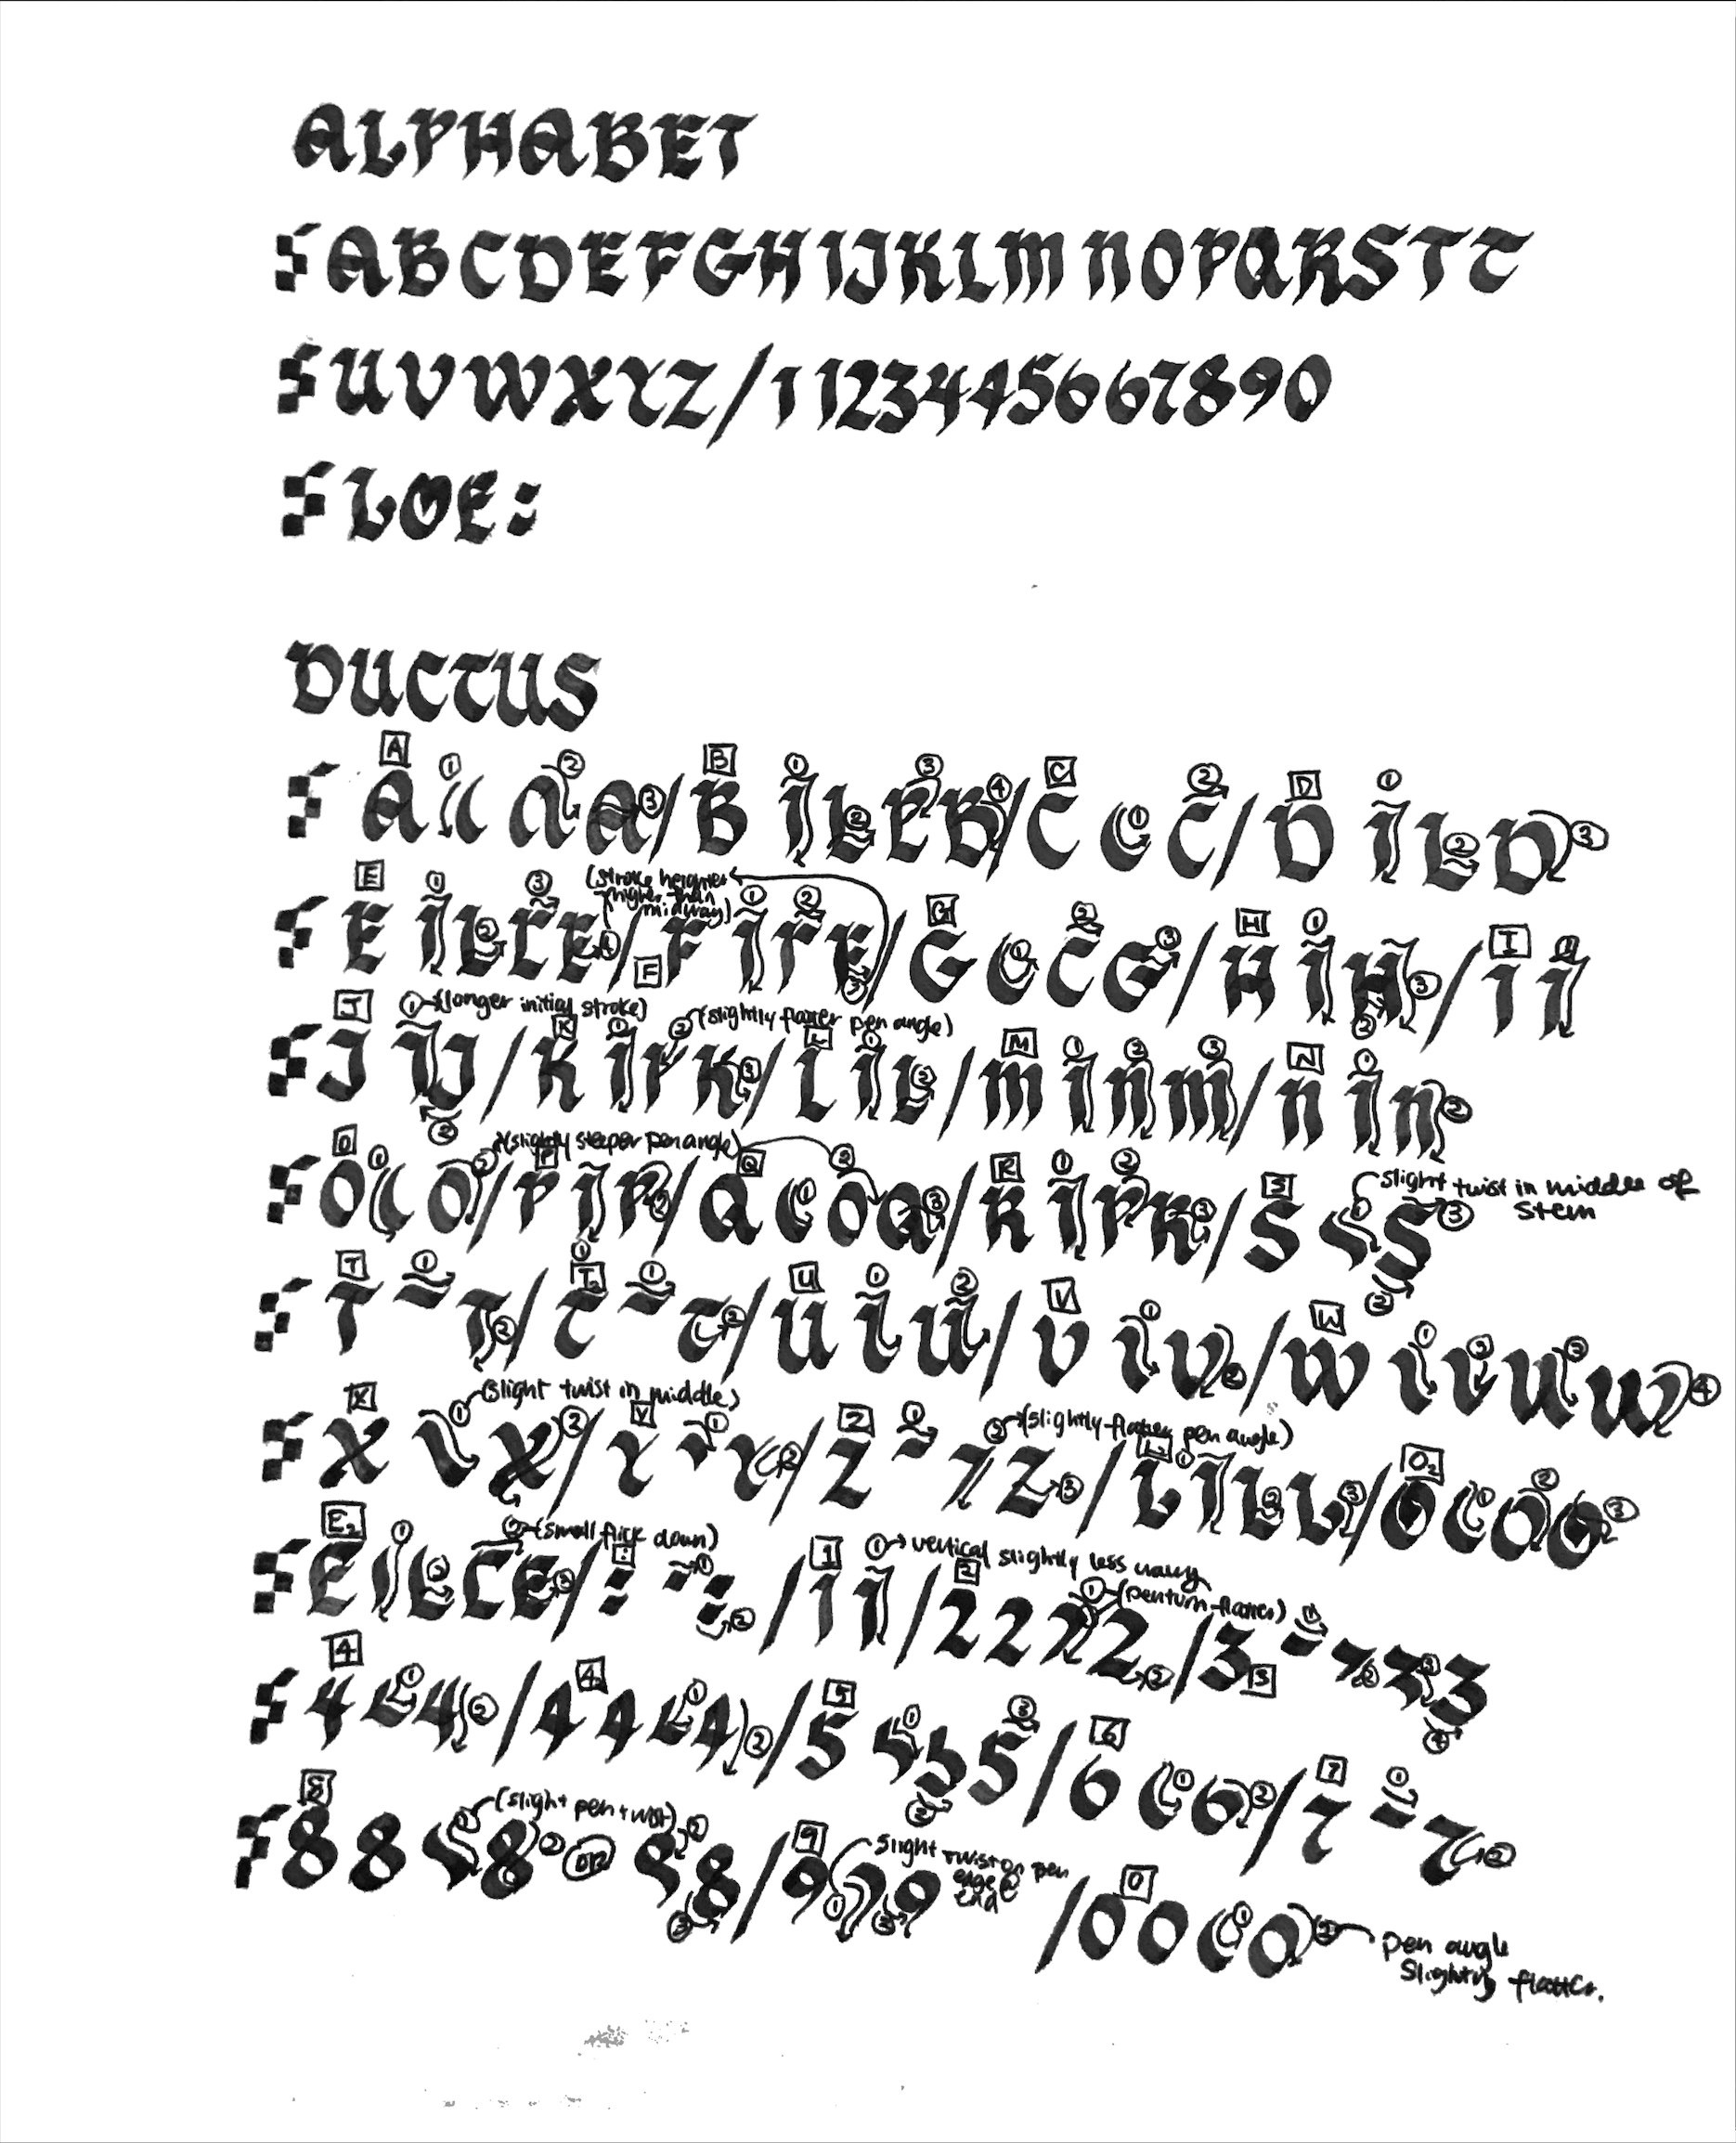 ALPHABET
ABCDEFGHIJKLMNOPQRSTT
UVWXYZ/1123445667890
LOE:
DUCTUS
A 1 2 3 / B 1 2 3 4 / C 1 2 / D 1 2 3
E 1 2 3 4 / F (stroke height higher than midway) 1 2 3 / G 1 2 3 / H 1 2 3 / I 1
J 1 (longer initial stroke) 2 / K 1 2 (slightly flatter pen angle) 3 / L 1 2 / M 1 2 3 / N 1 2
O 1 2 / P 1 2 (slightly steeper pen angle) / Q 1 2 3 / R 1 2 3 / S 1 slight twist in middle of stem 2 3
T 1 2 / T 1 2 / U 1 2 / V 1 2 / W 1 2 3 4
X 1 (slight twist in middle) 2 / Y 1 2 / Z 1 2 (slightly flatter pen angle) 3 / L 1 2 3 / O2 1 2 3
E2 1 2 (small flick down) 3 / : 1 2 / 1 1 vertical slightly less wavy / 2 1 (penturn flatter) 2 / 3 1 2 3 4
4 1 2 / 4 1 2 / 5 1 2 3 / 6 1 2 / 7 1 2
8 1 (slight pen twist) 2 OR 1 2 / 9 1 slight twist on pen edge @ end 2 / 0 1 2 pen angle slightly flatter.